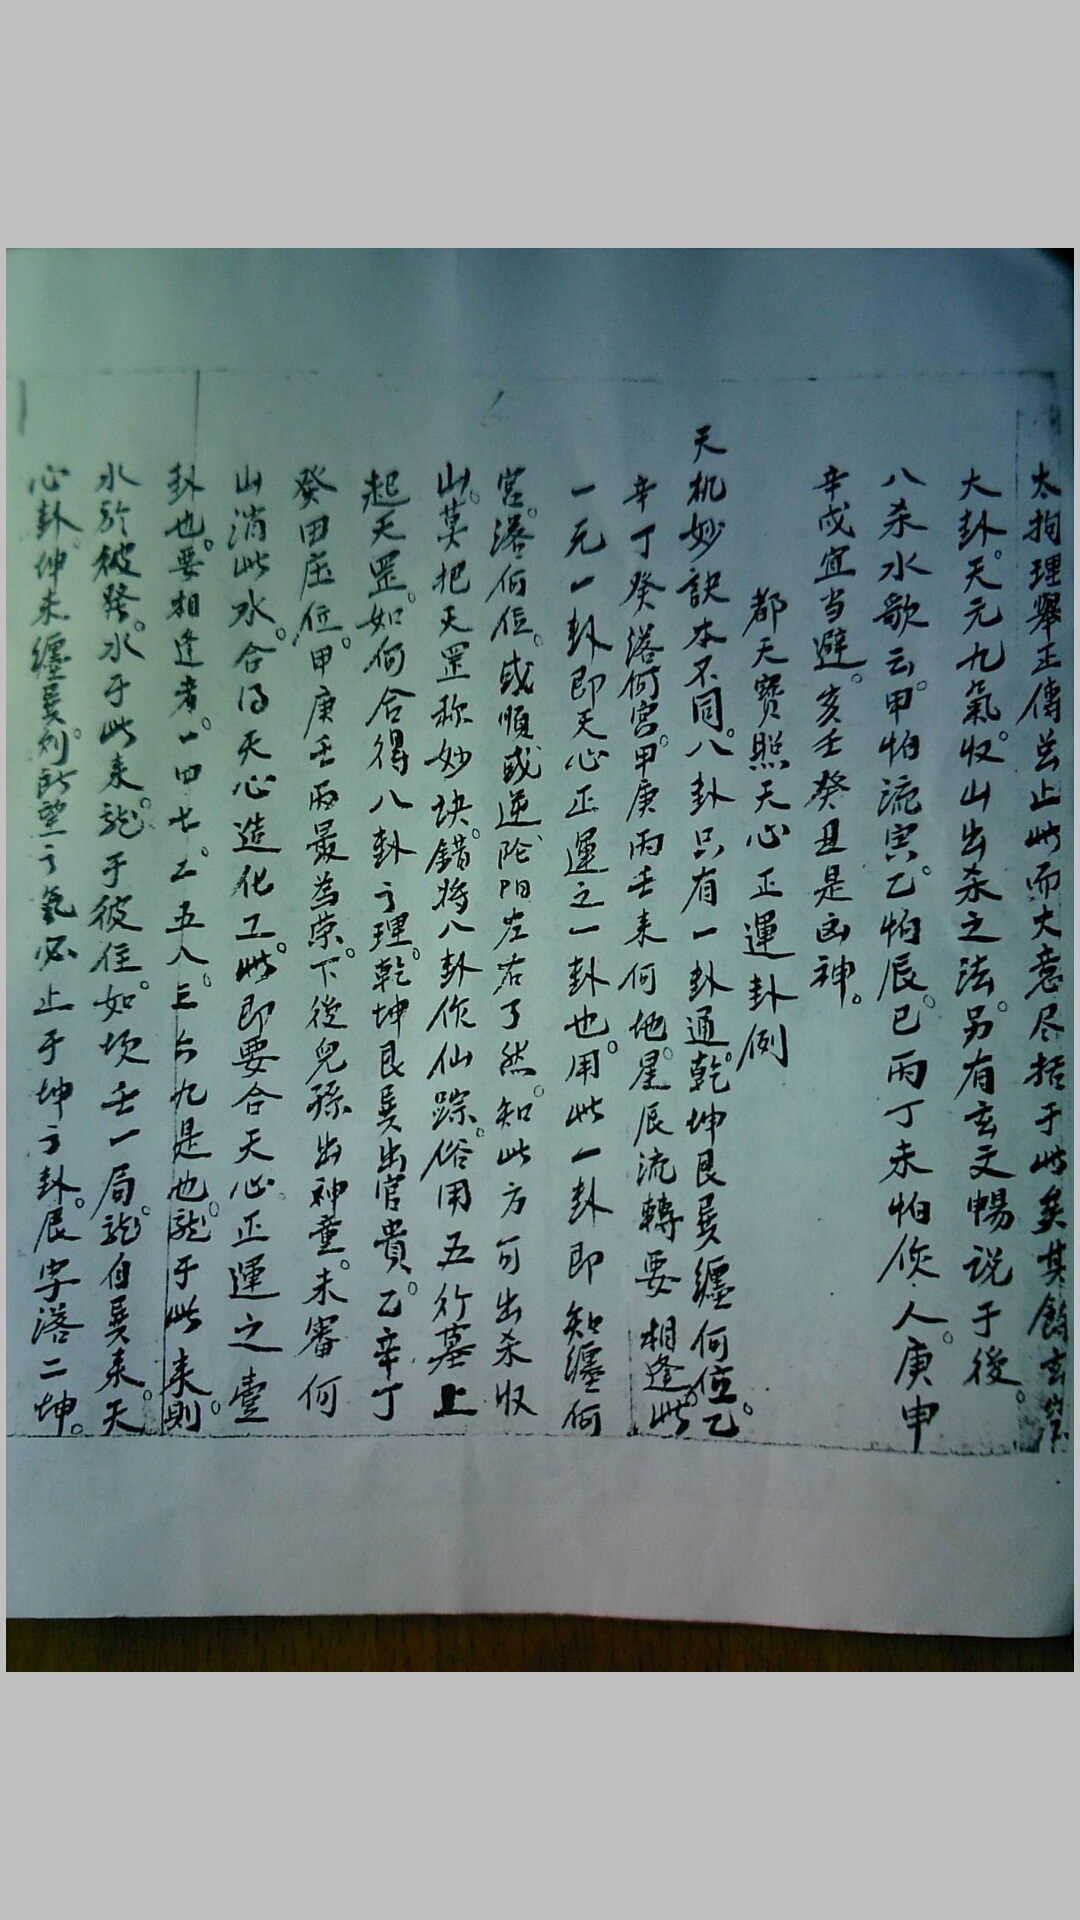 太拘理舉正傳总止此而大意尽括于此矣其餘玄
大卦。天元九氣收山出杀之法。另有玄文暢说于後。
八杀水歌云。甲怕流寅。乙怕辰。巳丙丁未怕人。庚申
辛戌宜当避。亥壬癸丑是凶神。
都天寶照天心正運卦例
天机妙訣本不同。八卦只有一卦通。乾坤艮巽纏何位。乙
辛丁癸落何宮。甲庚丙壬来何地。星辰流轉要相逢。此
一元一卦即天心正運之一卦也。用此一卦即知纏何
宮。落何位。或順或逆。阴阳左右了然。知此方可出杀收
山。莫把天罡称妙诀。錯将八卦作仙踪。俗用五行墓上
起天罡。如何合得八卦之理。乾坤艮巽出官貴。乙辛丁
癸田庄位。甲庚壬丙最為荣。下後兒孫出神童。未審何
山消此水。合得天心造化工。此即要合天心正運之壹
卦也。要相逢者。一四七。二五八。三六九是也。龙于此来則
水於彼發。水于此来。龙于彼住。如坎壬一局。龙自巽来。天
心卦。坤未纏巽。则所望之氣必止于坤之卦。辰字落二坤。